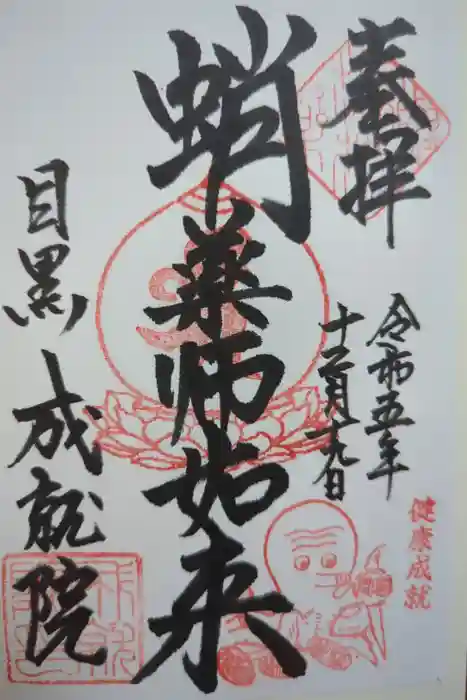 奉拝
令和五年
十二月十九日
蛸薬師如来
目黒 成就院
健康成就